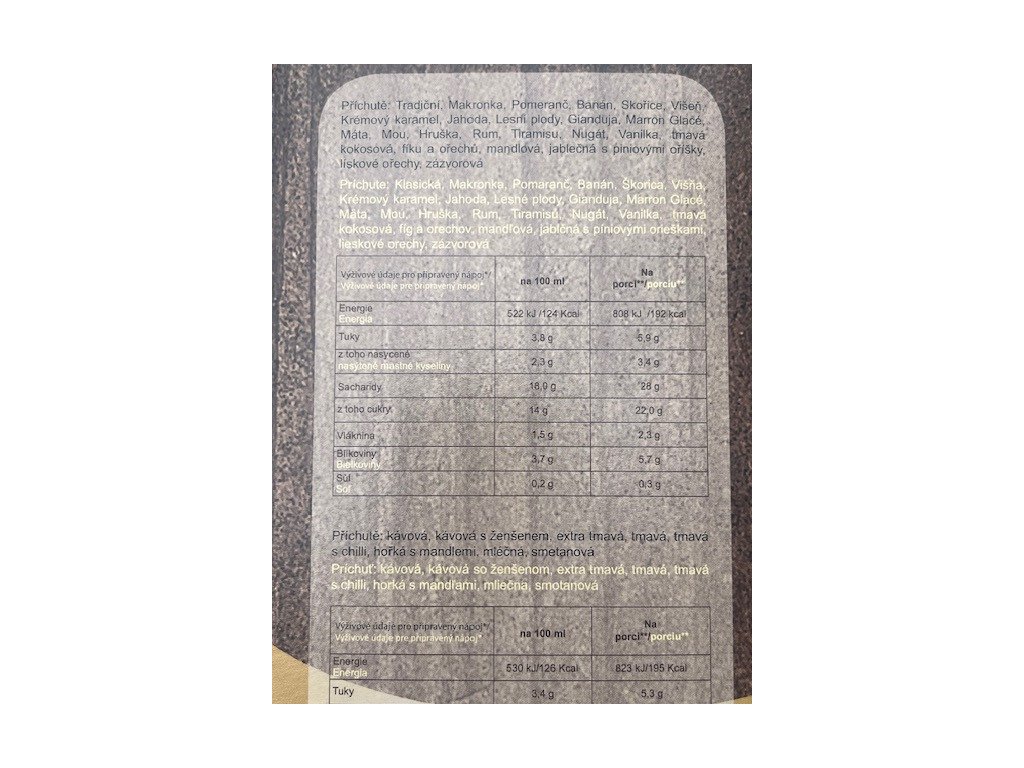 Příchutě: Tradiční, Makronka, Pomeranč, Banán, Skořice, Višeň,
Krémový karamel, Jahoda, Lesní plody, Gianduja, Marron Glacé,
Máta, Mou, Hruška, Rum, Tiramisu, Nugát, Vanilka, tmavá
kokosová, fíku a ořechů, mandlová, jablečná s piniovými oříšky,
lískové ořechy, zázvorová
Príchute: Klasická, Makronka, Pomaranč, Banán, Škorica, Višňa,
Krémový karamel, Jahoda, Lesné plody, Gianduja, Marron Glacé,
Máta, Mou, Hruška, Rum, Tiramisú, Nugát, Vanilka, tmavá
kokosová, fíg a orechov, mandľová, jablčná s píniovými orieškami,
lieskové orechy, zázvorová
Výživové údaje pro připravený nápoj*/
Výživové údaje pre připravený nápoj*
na 100 ml
Na
porci**/porciu**
Energie
Energia
522 kJ /124 Kcal
808 kJ /192 kcal
Tuky
3,8 g
5,9 g
z toho nasycené
nasýtené mastné kyseliny
2,3 g
3,4 g
Sacharidy
18,0 g
28 g
z toho cukry
14 g
22,0 g
Vláknina
1,5 g
2,3 g
Bílkoviny
Bielkoviny
3,7 g
5,7 g
Sůl
Soľ
0,2 g
0,3 g
Příchutě: kávová, kávová s ženšenem, extra tmavá, tmavá, tmavá
s chilli, hořká s mandlemi, mléčná, smetanová
Príchuť: kávová, kávová so ženšenom, extra tmavá, tmavá, tmavá
s chilli, horká s mandľami, mliečna, smotanová
Výživové údaje pro připravený nápoj*/
Výživové údaje pre připravený nápoj*
na 100 ml
Na
porci**/porciu**
Energie
Energia
530 kJ/126 Kcal
823 kJ/195 Kcal
Tuky
3,4 g
5,3 g